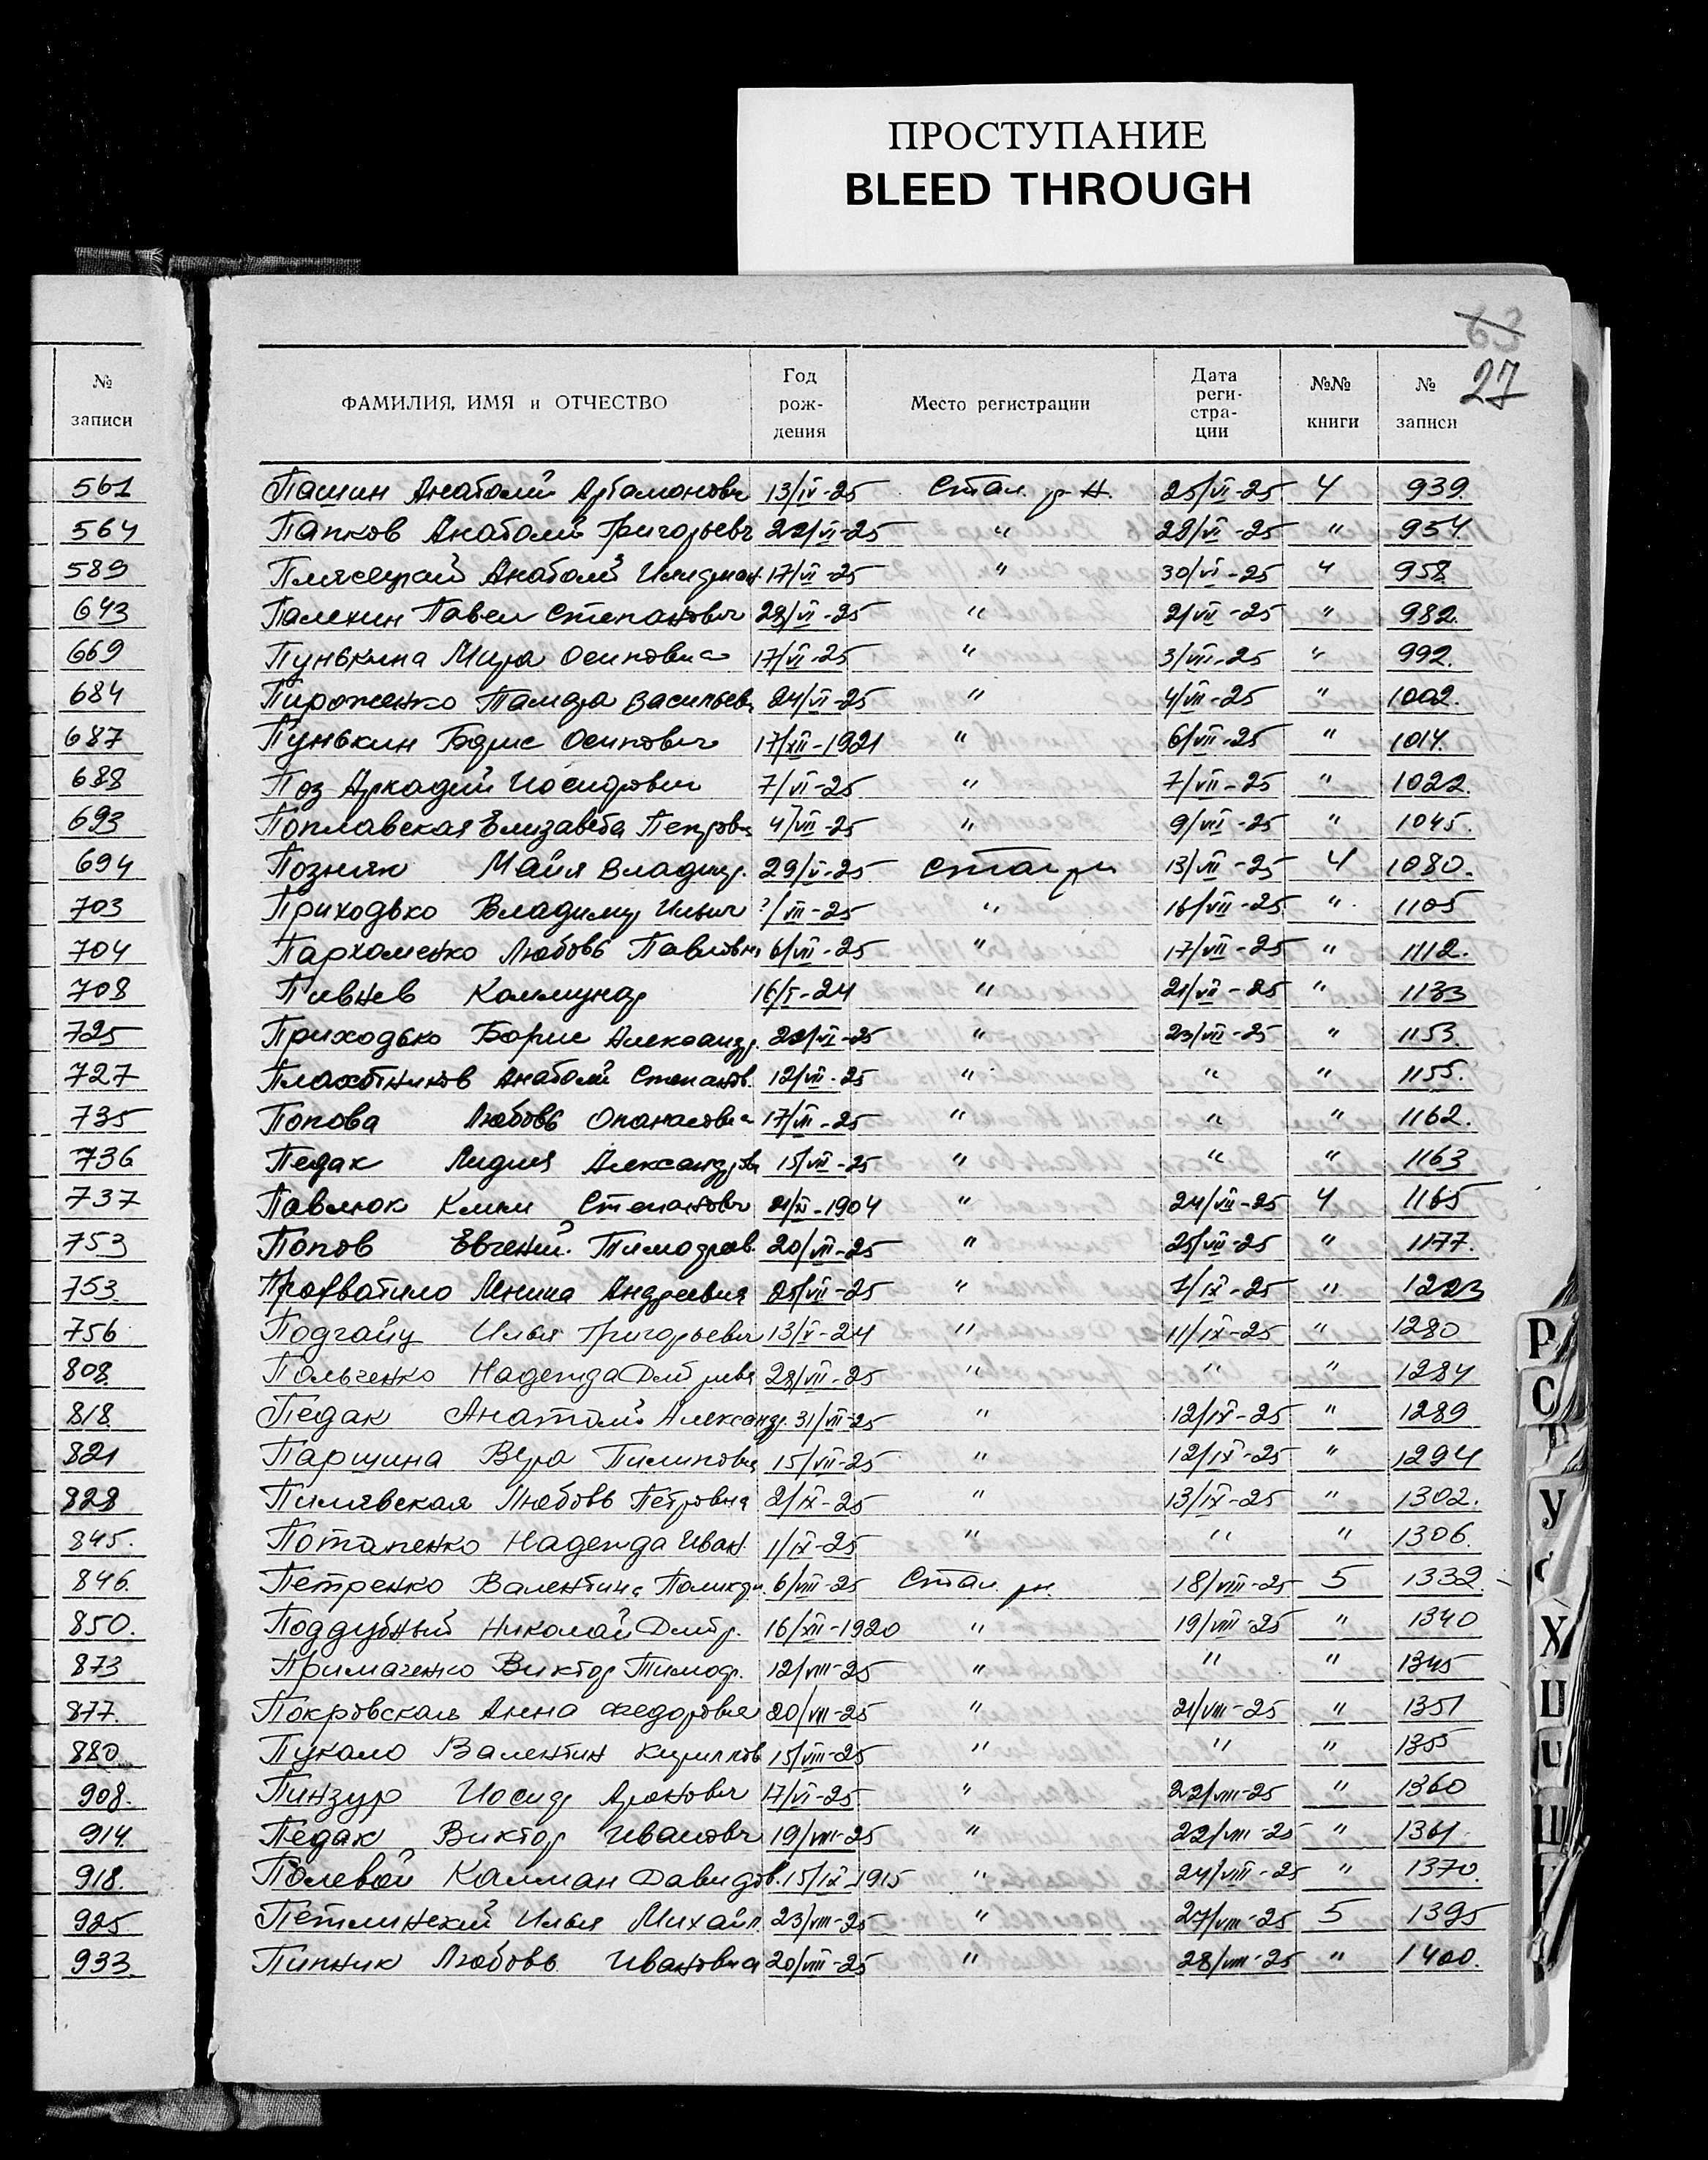 ПРОСТУПАНИЕ
BLEED THROUGH
63
27
№ записи
ФАМИЛИЯ, ИМЯ и ОТЧЕСТВО Год рож- дения Место регистрации Дата реги- стра- ции №№ книги № записи
561 Пашин Анатолий Артамонович 13/IV-25 Стал. р-н. 25/VI-25 4 939.
564 Папков Анатолий Григорьевич 22/VI-25 " 29/VI-25 " 954.
589 Анатолий 17/VI-25 " 30/VI-25 " 958
643 Палехин Павел Степанович 28/VI-25 " 2/VII-25 " 982.
669 Пунькина Мира Осиповна 17/VI-25 " 3/VII-25 " 992.
684 Пироженко Тамара Васильевн 24/VI-25 " 4/VII-25 " 1002.
687 Пунькин Борис Осипович 17/XII-1921 " 6/VII-25 " 1014.
688 Поз Аркадий Иосифович 7/VI-25 " 7/VII-25 " 1022.
693 Поплавская Елизавета Петровн 4/VII-25 " 9/VII-25 " 1045.
694 Позняк Майя Владимир. 29/V-25 Стал рн 13/VII-25 4 1080.
703 Приходько Владимир Ильич ?/VII-25 " 16/VII-25 " 1105
704 Пархоменко Любовь Павловна 6/VII-25 " 17/VII-25 " 1112.
708 Пивнев Коммунар 16/I-24 " 21/VII-25 " 1133
725 Приходько Борис Александр. 22/VI-25 " 23/VII-25 " 1153.
727 Плахотников Анатолий Степанов. 12/VII-25 " " " 1155.
735 Попова Любовь Опанасовна 17/VII-25 " " " 1162.
736 Педак Лидия Александровн 15/VII-25 " " " 1163
737 Павлюк Клим Степанович 21/XI-1904 " 24/VII-25 4 1165
753 Попов Евгений Тимофеев. 20/VII-25 " 25/VII-25 " 1177.
753. Ленина Андреевна 25/VII-25 " 1/IX-25 " 1223
756 Подгайц Илья Григорьевич 13/V-24 " 11/IX-25 " 1280
808. Польченко Надежда 28/VII-25 " " " 1284
818. Педак Анатолий Александр. 31/VII-25 " 12/IX-25 " 1289
821 Паршина Вера Пилиповна 15/VII-25 " 12/IX-25 " 1294
828 Пилявская Любовь Петровна 2/IX-25 " 13/IX-25 " 1302.
845. Потапенко Надежда Иван. 1/IX-25 " " " 1306.
846. Петренко Валентина 6/VIII-25 Стал. рн. 18/VIII-25 5 1332.
850. Поддубный Николай Дмитр. 16/XII-1920 " 19/VIII-25 " 1340
873 Примаченко Виктор Тимоф. 12/VIII-25 " " " 1345
877. Покровская Анна Федоровна 20/VII-25 " 21/VIII-25 " 1351
880 Пукало Валентин Кириллов. 15/VIII-25 " " " 1355
908. Пинзур Иосиф Аронович 17/VI-25 " 22/VIII-25 " 1360
914. Педак Виктор Иванович 19/VIII-25 " 22/VIII-25 " 1361
918. Полевой Калман Давидов. 15/IX-1915 " 24/VIII-25 " 1370.
925. Петлинский Илья Михайл. 23/VIII-25 " 27/VIII-25 5 1395
933. Пипник Любовь Ивановна 20/VIII-25 " 28/VIII-25 " 1400.
Р
С
Т
У
Х
Ц
Ш